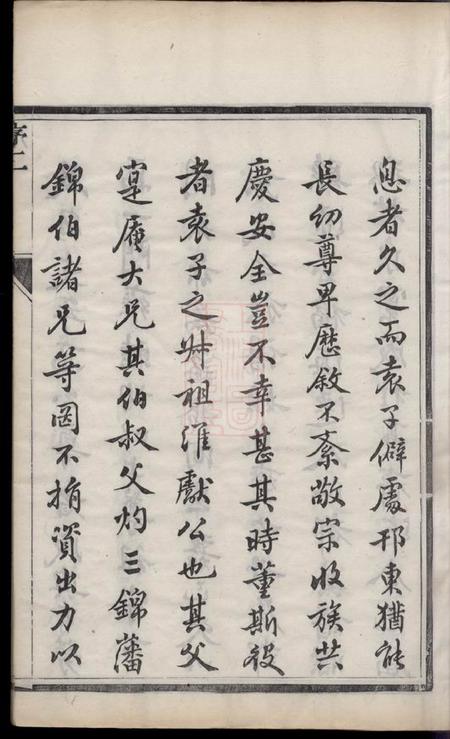 息者久之而袁子僻處邗東猶能
長幼尊卑歷敘不紊敬宗收族共
慶安全豈不幸甚其時董斯役
者袁子之叔祖維獻公也其父
寔庵大兄其伯叔父灼三錦藩
錦伯諸兄等罔不捐資出力以
序二